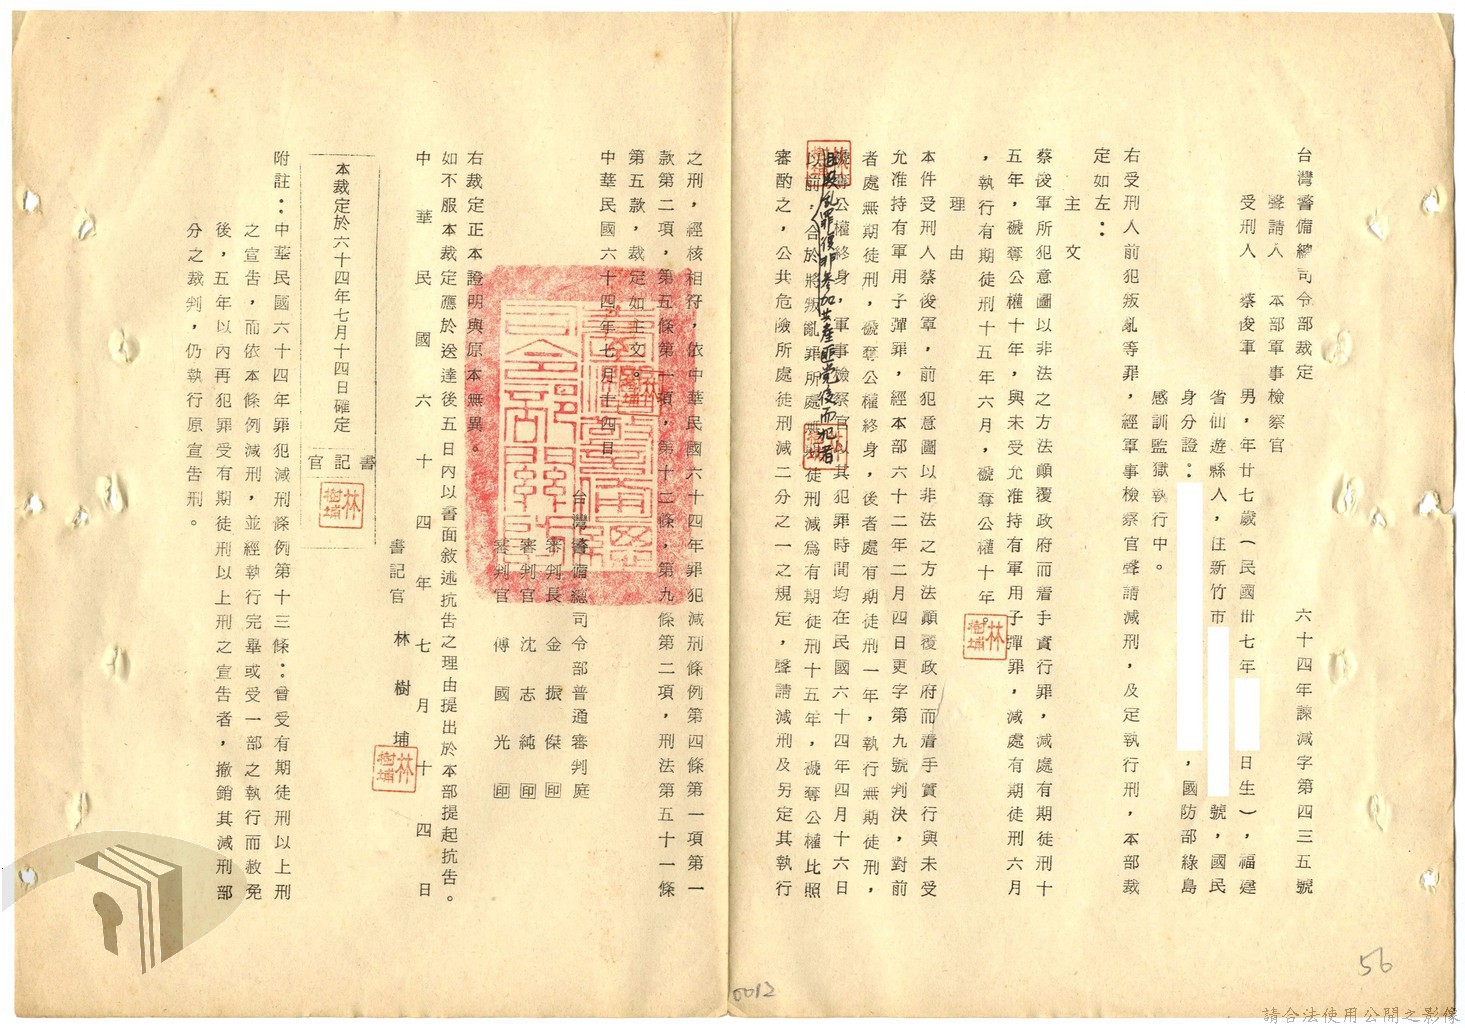 台灣警備總司令部裁定
六十四年諫減字第四三五號
聲請人　本部軍事檢察官
受刑人　蔡俊軍　男，年廿七歲（民國卅七年
日生），福建
省仙遊縣人，住新竹市
號，國民
身分證：
，國防部綠島
感訓監獄執行中。
右受刑人前犯叛亂等罪，經軍事檢察官聲請減刑，及定執行刑，本部裁
定如左：
主文
蔡俊軍所犯意圖以非法之方法顛覆政府而着手實行罪，減處有期徒刑十
五年，褫奪公權十年，與未受允准持有軍用子彈罪，減處有期徒刑六月
，執行有期徒刑十五年六月，褫奪公權十年。
林樹埔
理由
本件受刑人蔡俊軍，前犯意圖以非法之方法顛覆政府而着手實行與未受
允准持有軍用子彈罪，經本部六十二年二月四日更字第九號判決，對前
者處無期徒刑，褫奪公權終身，後者處有期徒刑一年，執行無期徒刑，
褫奪公權終身，軍事檢察官以其犯罪時間均在民國六十四年四月十六日
且叛亂罪復非參加共產匪黨後而犯者
以前，合於將叛亂罪所處無期徒刑減爲有期徒刑十五年，褫奪公權比照
審酌之，公共危險所處徒刑減二分之一之規定，聲請減刑及另定其執行
之刑，經核相符，依中華民國六十四年罪犯減刑條例第四條第一項第一
款第二項，第五條第一項，第十二條，第九條第二項，刑法第五十一條
第五款，裁定如主文。
中華民國六十四年七月十四日
台灣警備總司令部普通審判庭
審判長　金振傑　印
審判官　沈志純　印
審判官　傅國光　印
右裁定正本證明與原本無異。
如不服本裁定應於送達後五日內以書面敘述抗告之理由提出於本部提起抗告。
中華民國六十四年七月十四日
書記官　林樹埔
林樹埔
本裁定於六十四年七月十四日確定
書記官
林樹埔
附註：中華民國六十四年罪犯減刑條例第十三條：曾受有期徒刑以上刑
之宣告，而依本條例減刑，並經執行完畢或受一部之執行而赦免
後，五年以內再犯罪受有期徒刑以上刑之宣告者，撤銷其減刑部
分之裁判，仍執行原宣告刑。
56
0012
請合法使用公開之影像